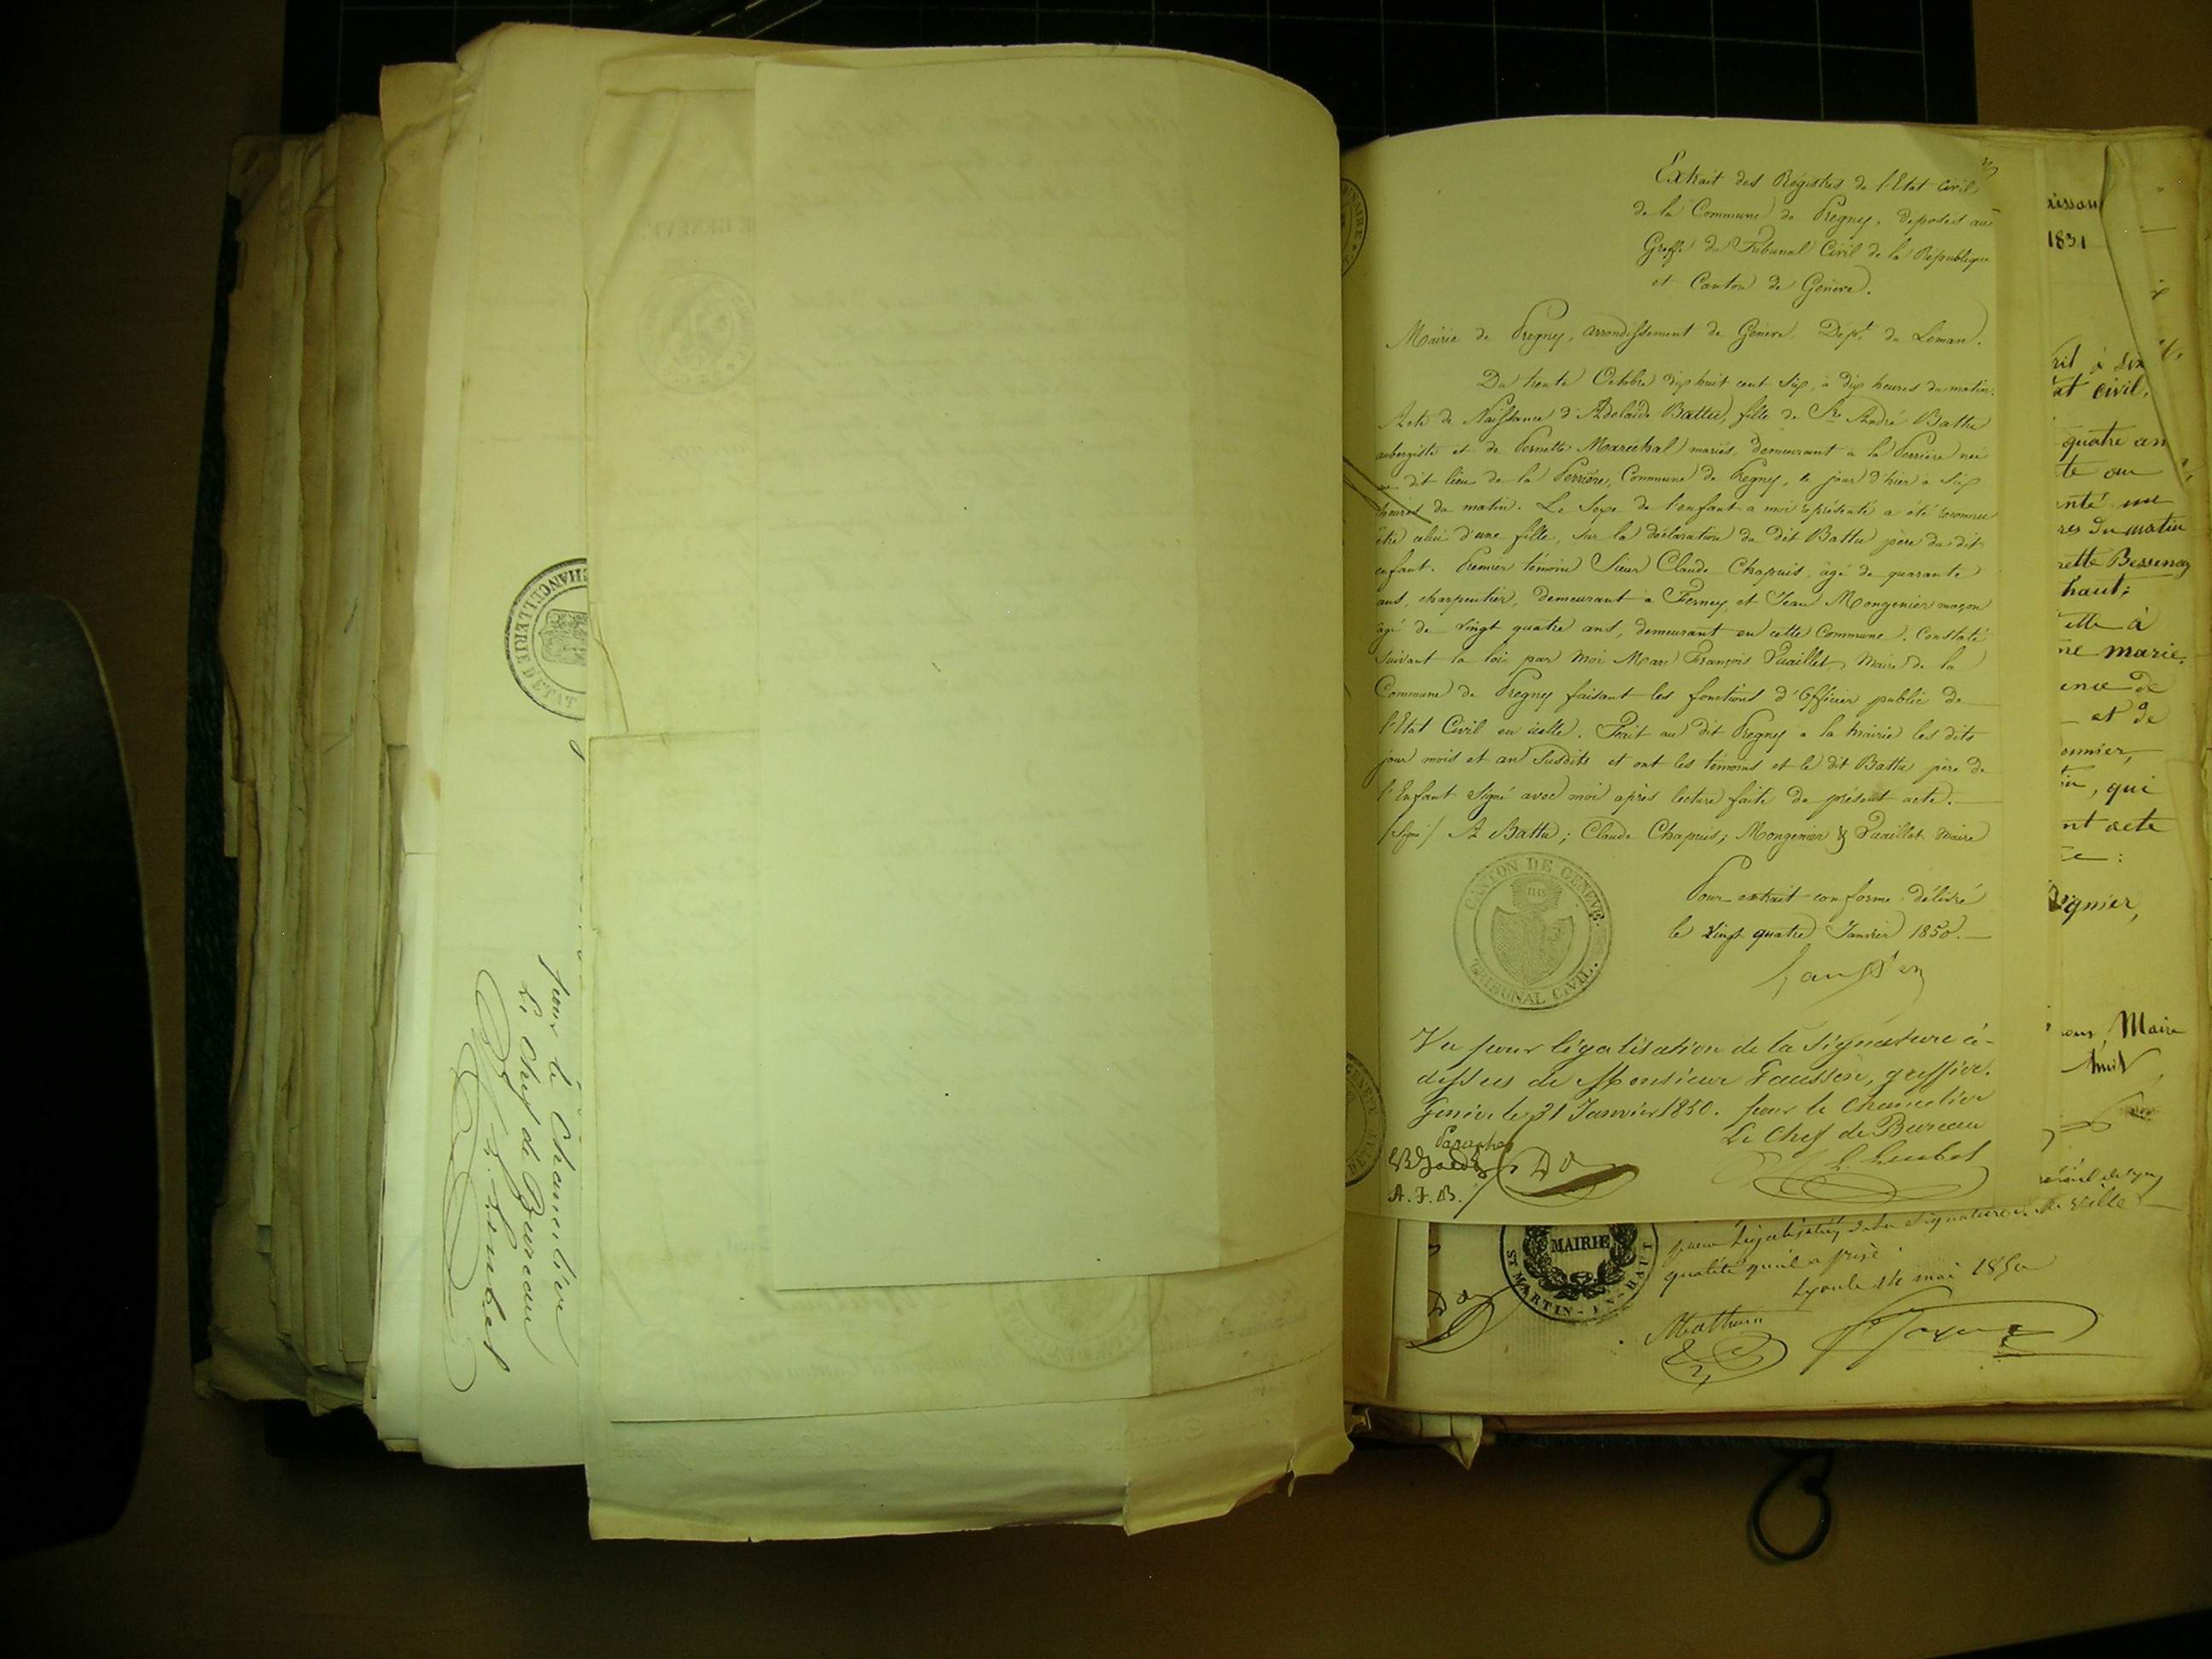 Extrait des Registres de l'Etat civil
de la Commune de Pregny, déposés au
Greffe du Tribunal Civil de la République
et Canton de Genève.
Mairie de Pregny, arrondissement de Genève, Dépt du Leman.
Du trente Octobre dix huit cent six, à dix heures du matin.
Acte de Naissance d'Adelaïde Battu, fille de Sr André Battu
aubergiste et de Pernette Marechal mariés, demeurant à la Perrière née
au dit lieu de la Perrière, Commune de Pregny, le jour d'hier à six
heures du matin. Le Sexe de l'enfant à moi représenté a été reconnu
être celui d'une fille, sur la déclaration du dit Battu père du dit
enfant. Premier témoin Sieur Claude Chapuis, âgé de quarante
ans, charpentier, demeurant à Ferney, et Jean Mongenier maçon
âgé de vingt quatre ans, demeurant en cette Commune. Constaté
suivant la loi par moi Marc François Vuaillet, Maire de la
Commune de Pregny faisant les fonctions d'Officier public de
l'Etat Civil en icelle. Fait au dit Pregny à la mairie les dits
jour mois et an susdits et ont les témoins et le dit Battu père de
l'Enfant signé avec moi après lecture faite du présent acte.
/Signé/ A Battu; Claude Chapuis; Mongenier & Vuaillet Maire
CANTON DE GENEVE.
TRIBUNAL CIVIL.
Pour extrait conforme délivré
le vingt quatre Janvier 1850.
Vu pour légalisation de la signature ci-
dessus de Monsieur Faussen, greffier.
Genève le 31 Janvier 1850. pour le Chancelier
Le Chef de Bureau
A. J. B.
MAIRIE
ST MARTIN-EN-HAUT
pour légalisation de la signature de
qualité qu'il a prise
Lyon le 14 mai 1850
CHANCELLERIE D'ETAT
pour le Chancelier
Le Chef de Bureau
1831
at civil,
quatre an
te ou
nté une
res du matin
rette Bessenay
haut;
ette à
ne marie,
ence de
et de
, qui
nt acte
Maire